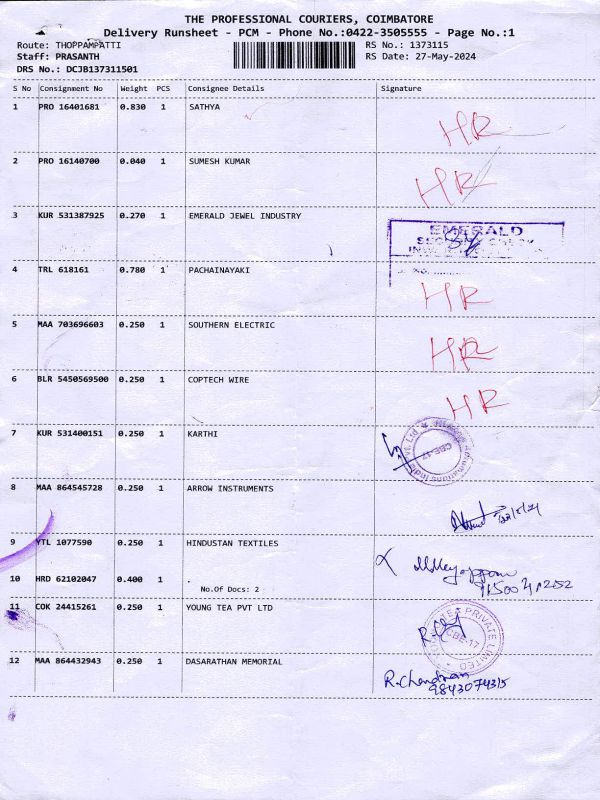 THE PROFESSIONAL COURIERS, COIMBATORE
Delivery Runsheet - PCM - Phone No.:0422-3505555 - Page No.:1
Route: THOPPAMPATTI RS No.: 1373115
Staff: PRASANTH RS Date: 27-May-2024
DRS No.: DCJB137311501
S No Consignment No Weight PCS Consignee Details Signature
1 PRO 16401681 0.830 1 SATHYA
HR
2 PRO 16140700 0.040 1 SUMESH KUMAR
HR
3 KUR 531387925 0.270 1 EMERALD JEWEL INDUSTRY
EMERALD
4 TRL 618161 0.780 1 PACHAINAYAKI
HR
5 MAA 703696603 0.250 1 SOUTHERN ELECTRIC
HR
6 BLR 5450569500 0.250 1 COPTECH WIRE
HR
7 KUR 531400151 0.250 1 KARTHI
CBE-17
8 MAA 864545728 0.250 1 ARROW INSTRUMENTS
9 YTL 1077590 0.250 1 HINDUSTAN TEXTILES
10 HRD 62102047 0.400 1
No.Of Docs: 2
11 COK 24415261 0.250 1 YOUNG TEA PVT LTD
TEA PRIVATE LIMITED
CBE-17
12 MAA 864432943 0.250 1 DASARATHAN MEMORIAL
R.Chandran
9843074315